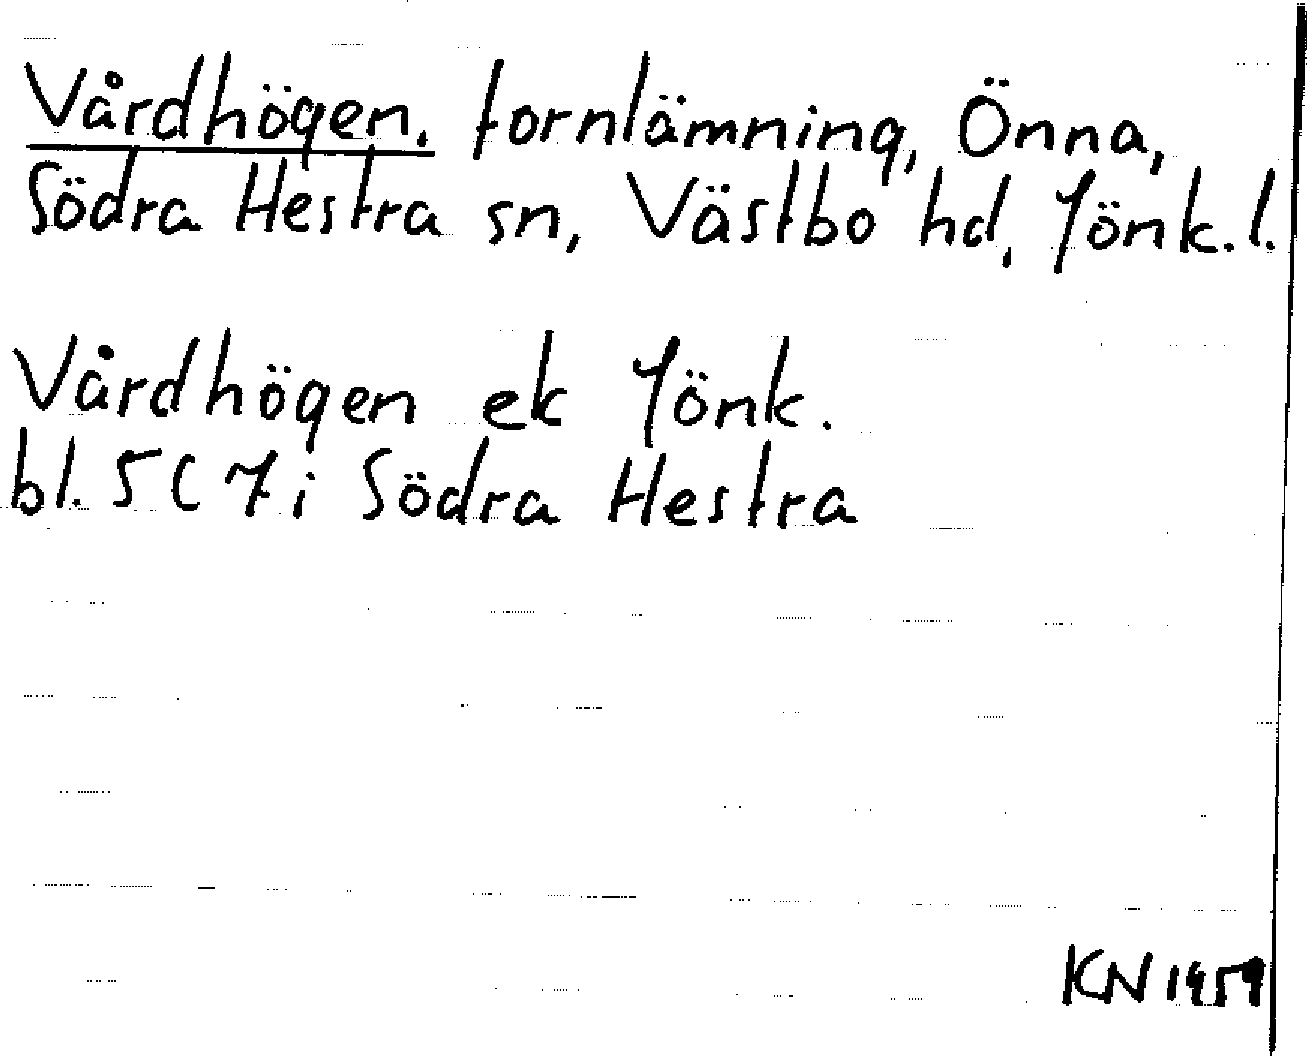 Vårdhögen, fornlämning, Önna,
Södra Hestra sn, Västbo hd, Jönk. l.
Vårdhögen ek Jönk.
bl. 5C7i Södra Hestra
KN 1959